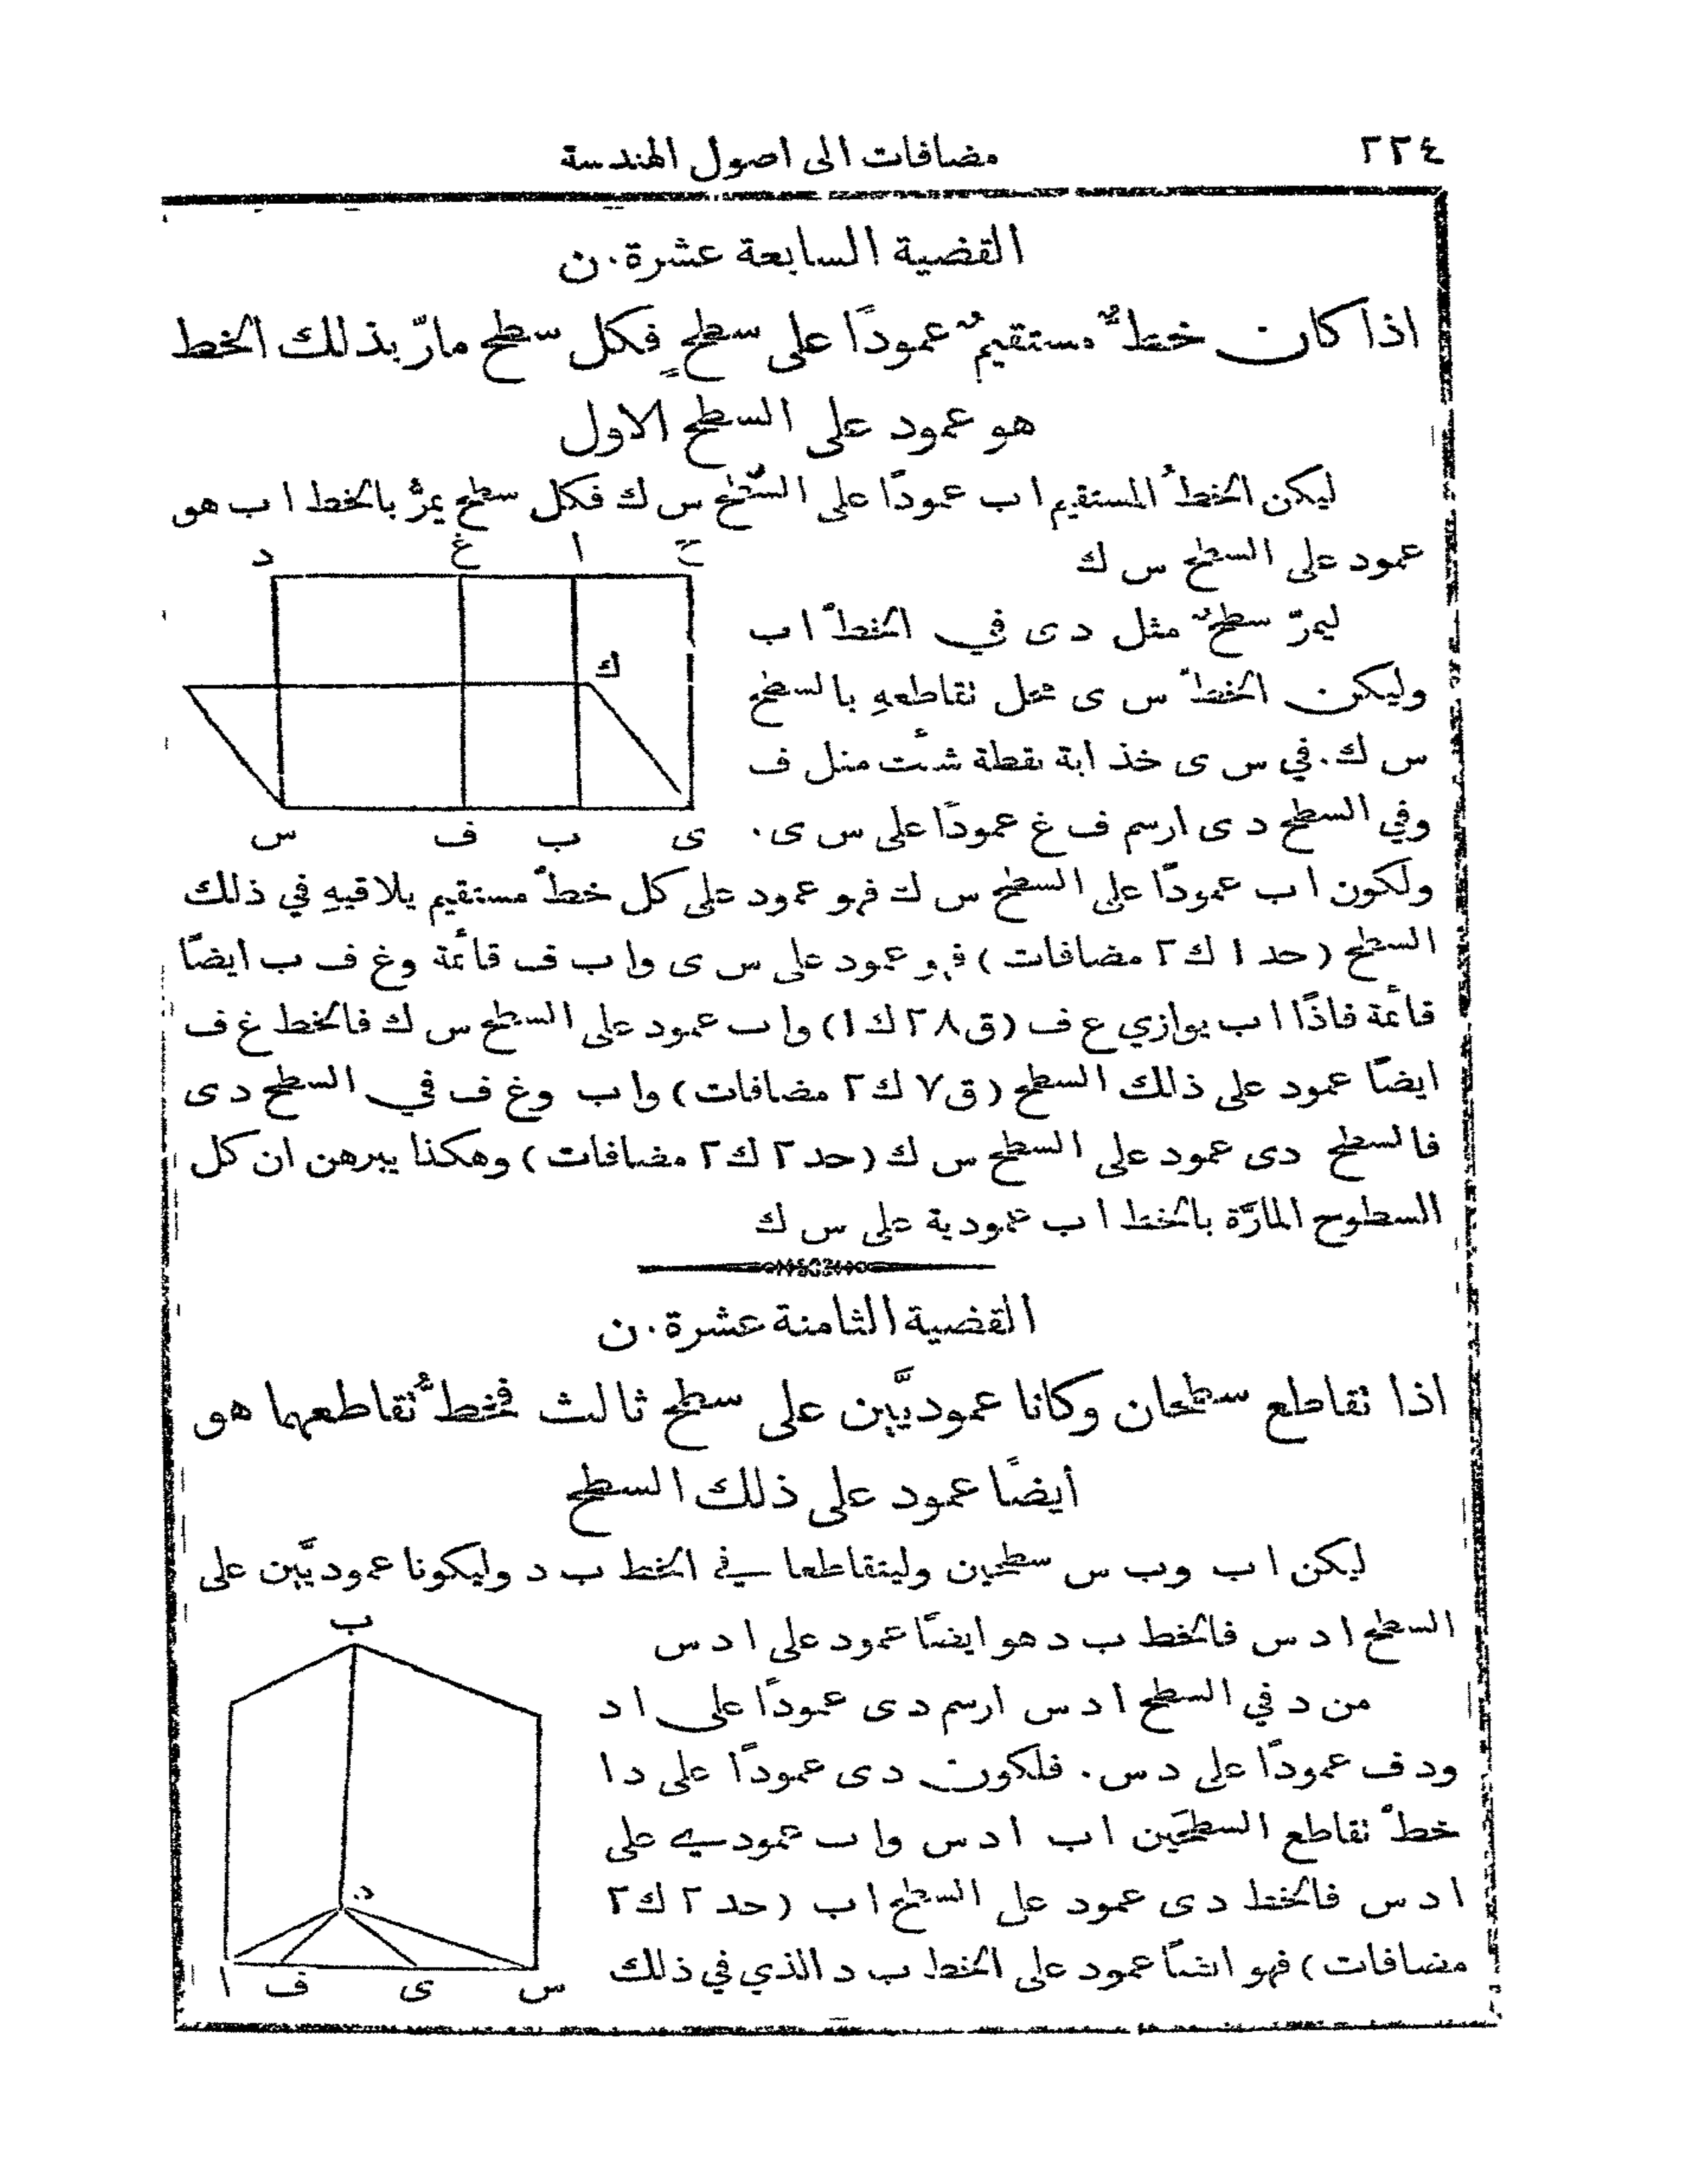 ٢٢٤ مضافات الى اصول الهندسة
القضية السابعة عشرة.ن
اذا كان خطٌّ مستقيمٌ عمودًا على سطحٍ فكل سطح مارّ بذلك الخط
هو عمود على السطح الاول
ليكن الخطُّ المستقيم ا ب عمودًا على السَّطح س ك فكل سطح يمرُّ بالخط ا ب هو
عمود على السطح س ك
د غ ا ح
ليمرّ سطحٌ مثل د ى في الخطّ ا ب
ك
وليكن الخطّ س ى محل تقاطعهِ بالسطح
س ك. في س ى خذ اية نقطة شئت مثل ف
وفي السطح د ى ارسم ف غ عمودًا على س ى.
س ف ب ى
ولكون ا ب عمودًا على السطح س ك فهو عمود على كل خطّ مستقيم يلاقيهِ في ذلك
السطح (حد ١ ك ٢ مضافات) فهو عمود على س ى وا ب ف قائمة وغ ف ب ايضًا
قائمة فاذًا ا ب يوازي ع ف (ق ٢٨ ك ١) وا ب عمود على السطح س ك فالخط غ ف
ايضًا عمود على ذلك السطح (ق ٧ ك ٢ مضافات) وا ب وغ ف في السطح د ى
فالسطح دى عمود على السطح س ك (حد ٢ ك ٢ مضافات) وهكذا يبرهن ان كل
السطوح المارّة بالخط ا ب عمودية على س ك
القضية الثامنة عشرة.ن
اذا تقاطع سطحان وكانا عموديَّين على سطح ثالث فخطُّ تقاطعهما هو
أيضًا عمود على ذلك السطح
ليكن ا ب وب س سطحين وليتقاطعا في الخط ب د وليكونا عموديَّين على
السطح ا د س فالخط ب د هو ايضًا عمود على ا د س
ب
من د في السطح ا د س ارسم د ى عمودًا على ا د
ود ف عمودًا على د س. فلكون د ى عمودًا على د ا
خطّ تقاطع السطحَين ا ب ا د س وا ب عمودي على
ا د س فالخط د ى عمود على السطح ا ب (حد ٢ ك ٢
د
مضافات) فهو ايضًا عمود على الخط ب د الذي في ذلك
ا ف ى س